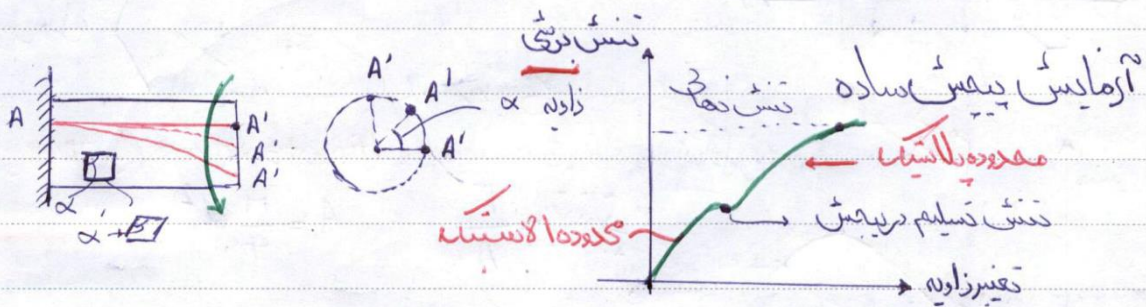 آزمایش پیچش ساده
تنش برشی
تنش نهائی
محدوده پلاستیک
تنش تسلیم در پیچش
محدوده الاستیک
تغییر زاویه
زاویه α
A'
A'
A'
A
A'
A'
A'
α
α'